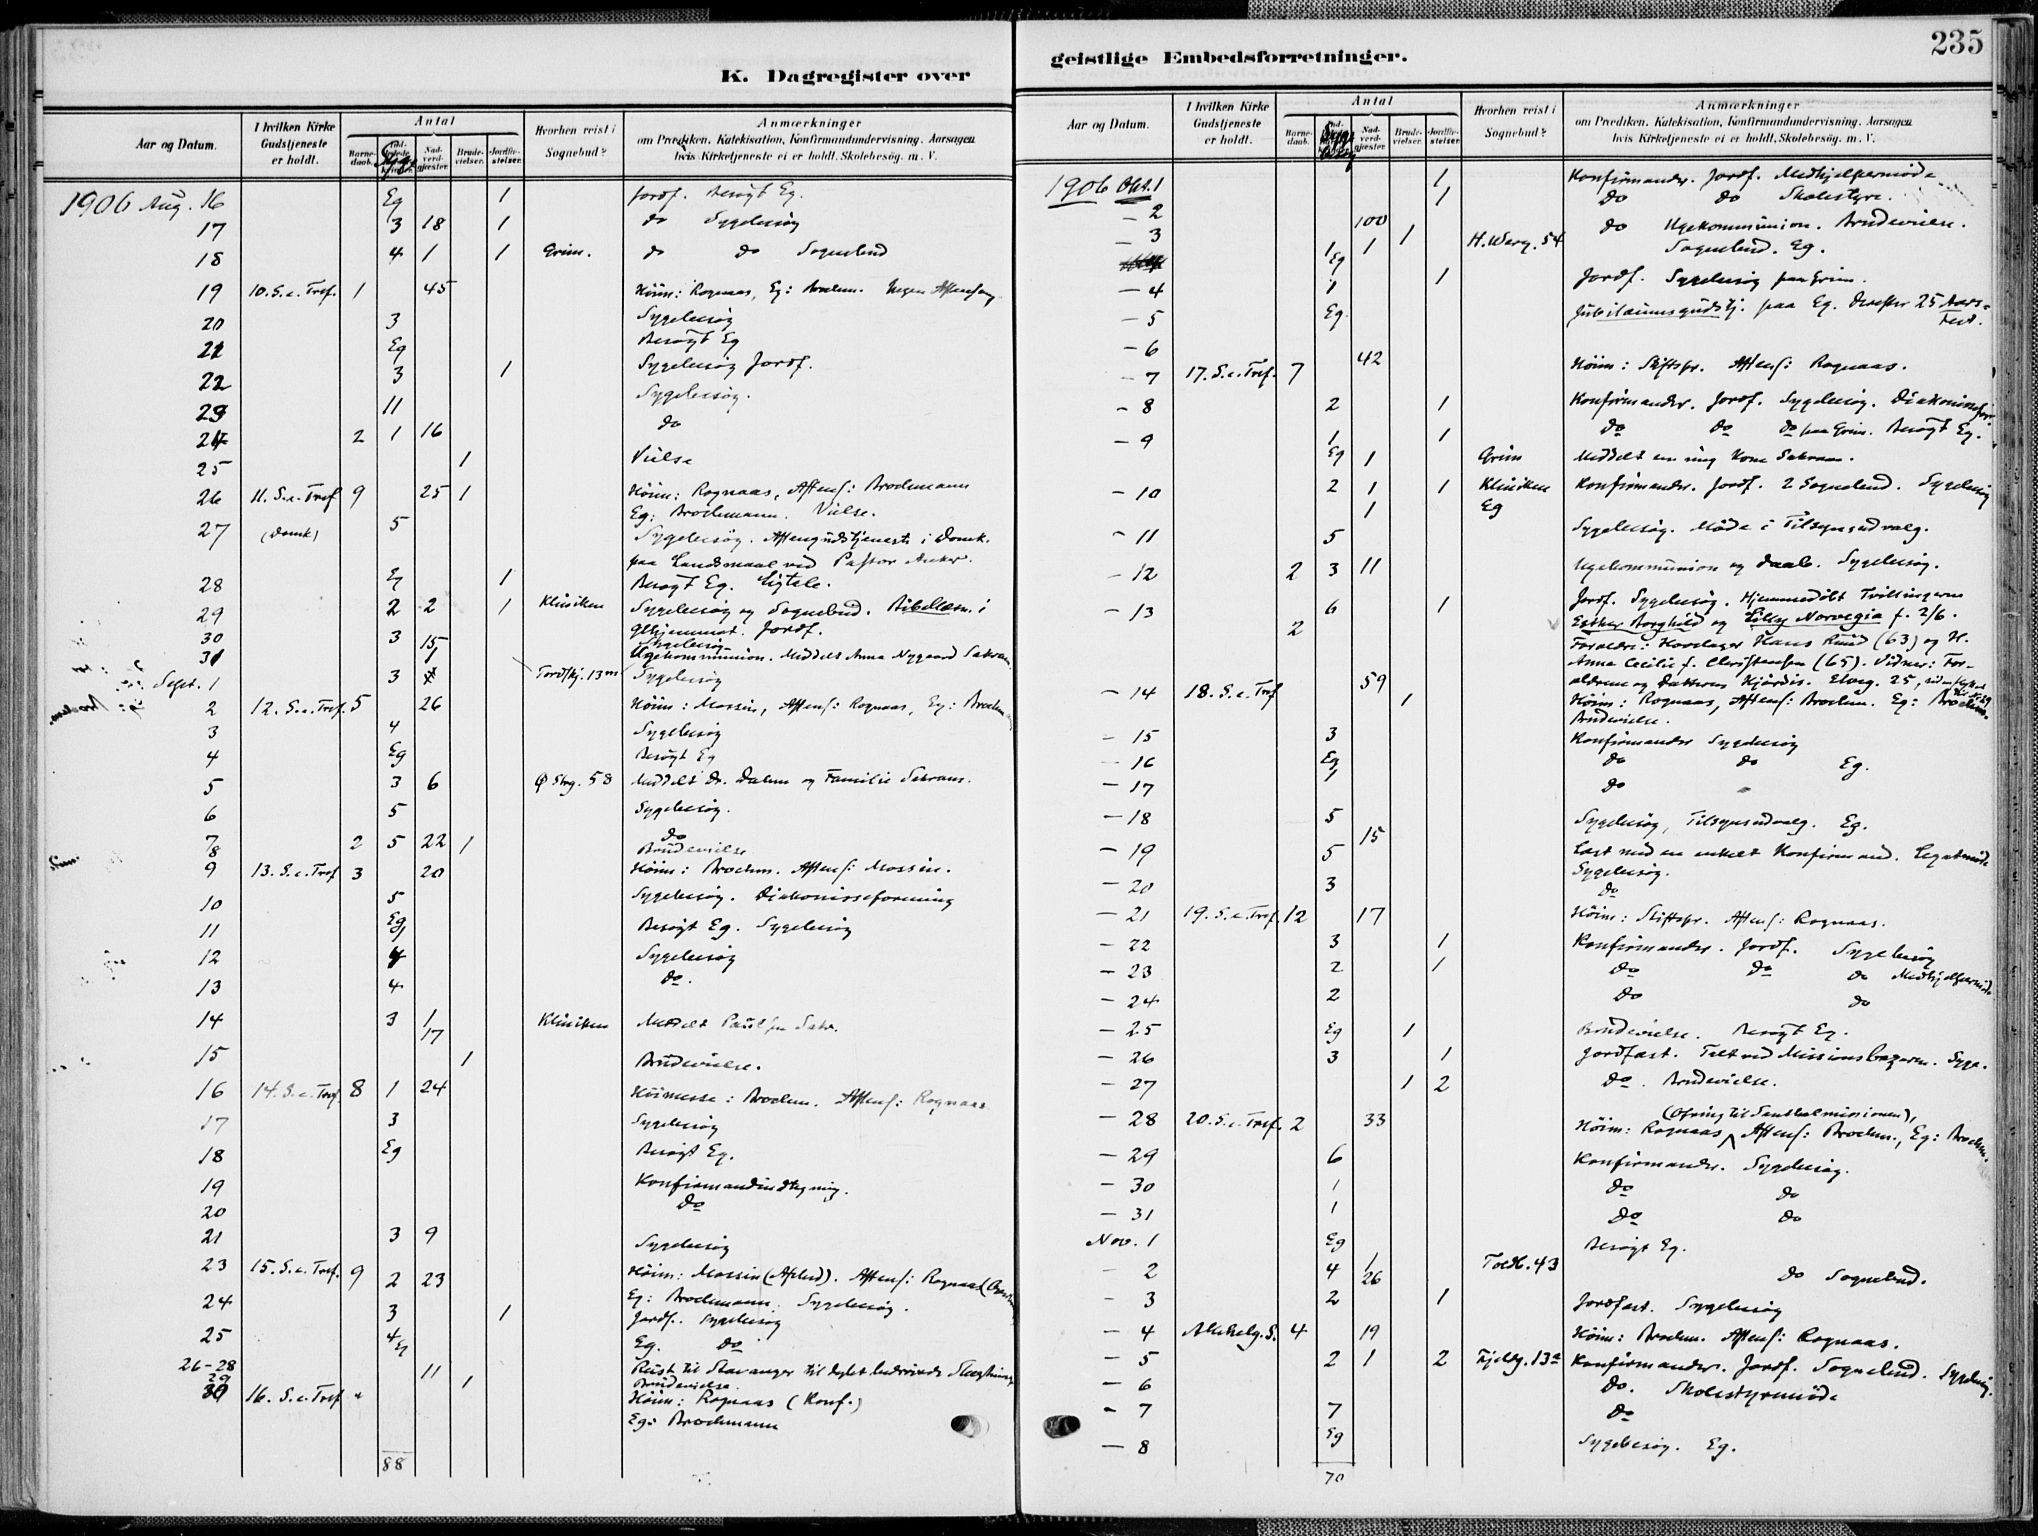 235
K. Dagregister over geistlige Embedsforretninger.
Aar og Datum. I hvilken Kirke Gudstjeneste er holdt. Antal Barne-daab. Syge Nad-verd-gjæster. Brude-vielser. Jordfæ-stelser. Hvorhen reist i Sognebud? Anmærkninger om Prædiken, Katekisation, Konfirmandundervisning, Aarsagen hvis Kirketjeneste ei er holdt, Skolebesøg, m. V.
1906 Aug. 16 Eg 1 Jordf. Besøgt Eg.
17 3 18 1 do Sygebesøg
18 4 1 1 Grim. do do Sognebud
19 10. S. e. Tref. 1 45 Höim: Rognaas, Eg: Brochm. Ingen Aftensang
20 3 Sygebesøg
21 Eg Besøgt Eg
22 3 1 Sygebesøg Jordf.
23 11 Sygebesøg.
24 2 1 16 do
25 1 Vielse
26 11. S. e. Tref 9 25 1 Höim: Rognaas, Aftens: Brochmann
Eg: Brochmann. Vielse.
27 (Domk) 5 Sygebesøg. Aftengudstjeneste i Domk.
paa Landsmaal ved Pastor Anker.
28 Eg 1 Besøgt Eg.
29 2 2 1 Kliniken Sygebesøg og Sognebud. Bibellæsn. i
Jordf.
30 3 15 Sygebesøg
31 1 Ugekommunion. Meddelt Anna Nygaard Sakram.
Sept. 1 3 Tordskj. 13 Sygebesøg
2 12. S. e. Tref. 5 26 Höim: Mossin, Aftens: Rognaas, Eg: Brochm
3 4 Sygebesøg
4 Eg Besøgt Eg
5 3 6 Ø Strg. 58 Meddelt Dr. Dalum og Familie Sakram.
6 5 Sygebesøg.
7 2 5 22 do
8 1 Brudevielse
9 13. S. e. Tref 3 20 Höim: Brochm. Aftens: Mossin.
10 5 Sygebesøg. Diakonisseforening
11 Eg Besøgt Eg. Sygebesøg
12 4 Sygebesøg
13 4 do.
14 3 1 17 Kliniken Meddelt Paulsen Sakr.
15 1 Brudevielse.
16 14. S. e. Tref. 8 1 24 Höimesse: Brochm. Aftens: Rognaas
17 3 Sygebesøg
18 Eg Besøgt Eg.
19 Konfirmandindtegning.
20 do
21 3 9 Sygebesøg
23 15. S. e. Tref. 9 2 23 Höim: Mossin (Afsked). Aftens: Rognaas
Eg: Brochmann. Sygebesøg.
24 3 1 Jordf. Sygebesøg
25 4 Eg Eg. do
26-28 11 Reist til Stavanger
29 1 Brudevielse.
30 16. S. e. Tref Höim: Rognaas (Konf.)
Eg: Brochmann
88
Aar og Datum. I hvilken Kirke Gudstjeneste er holdt. Antal Barne-daab. Nad-verd-gjæster. Brude-vielser. Jordfæ-stelser. Hvorhen reist i Sognebud? Anmærkninger om Prædiken, Katekisation, Konfirmandundervisning, Aarsagen hvis Kirketjeneste ei er holdt, Skolebesøg, m. V.
1906 Okt. 1 1 Konfirmander. Jordf. Medhjelpermöde
- 2 1 do do Skolestyre.
- 3 100 1 do Ugekommunion. Brudevielse.
1 Eg 1 H. Werg. 54 Sognebud. Eg.
- 4 1 1 Jordf. Sygebesøg paa Grim.
- 5 Eg. Jubilæumsgudstj. paa Eg. Derefter 25 Aars-
Fest.
- 6
- 7 17. S. e. Tref. 7 42 Höim: Stiftspr. Aftens: Rognaas.
- 8 2 1 Konfirmander. Jordf. Sygebesøg. Diakonissefor.
- 9 1 1 do do do paa Grim. Besøgt Eg.
Eg 1 Grim Meddelt en ung Kone Sakram.
- 10 2 1 1 Kliniken Konfirmander. Jordf. 2 Sognebud. Sygebesøg
1 Eg
- 11 5 Sygebesøg. Möde i Tilsynsudvalg.
- 12 2 3 11 Ugekommunion og Daab. Sygebesøg.
- 13 6 1 Jordf. Sygebesøg. Hjemmedöbt Tvillingerne
2 Esther Borghild og Lilly Norvegia f. 2/6.
Forældre: Hans Ruud (63) og H.
Anna Cecilie f. Christensen (65). Vidner: For-
ældrene og Datteren Hjördis. Elveg. 25,
- 14 18. S. e. Tref 59 1 Höim: Rognaas, Aftens: Brochm. Eg: Brochm.
Brudevielse.
- 15 3 Konfirmander Sygebesøg
- 16 Eg do do Eg.
- 17 1 do
- 18 5 Sygebesøg, Tilsynsudvalg. Eg.
- 19 5 15 Læst med en enkelt Konfirmand. Legatmöde
Sygebesøg.
- 20 3 do
- 21 19. S. e. Tref. 12 17 Höim: Stiftspr. Aftens: Rognaas.
- 22 3 1 Konfirmander. Jordf. Sygebesøg
- 23 2 1 do do do Medhjelpermöde
- 24 2 do do
- 25 Eg 1 Brudevielse. Besøgt Eg.
- 26 3 1 Jordfæst. Talt ved Missionsbazaren. Syge.
- 27 1 2 do. Brudevielse.
- 28 20. S. e. Tref. 2 33 (Ofring til Santhalmissionen),
Höim: Rognaas, Aftens: Brochm., Eg: Brochm.
- 29 6 Konfirmander. Sygebesøg.
- 30 1 do do
- 31 1 do do
Nov. 1 Eg Besøgt Eg.
- 2 4 1 26 Toldb. 43 do Sognebud.
- 3 2 1 Jordfæst. Sygebesøg
- 4 Allehelg. S. 4 19 Höim: Brochm. Aftens: Rognaas.
- 5 2 1 2 Fjeldg. 13a Konfirmander. Jordf. Sognebud. Sygebesøg.
- 6 do. Skolestyremöde
- 7 7 do
- 8 Eg Sygebesøg. Eg.
70